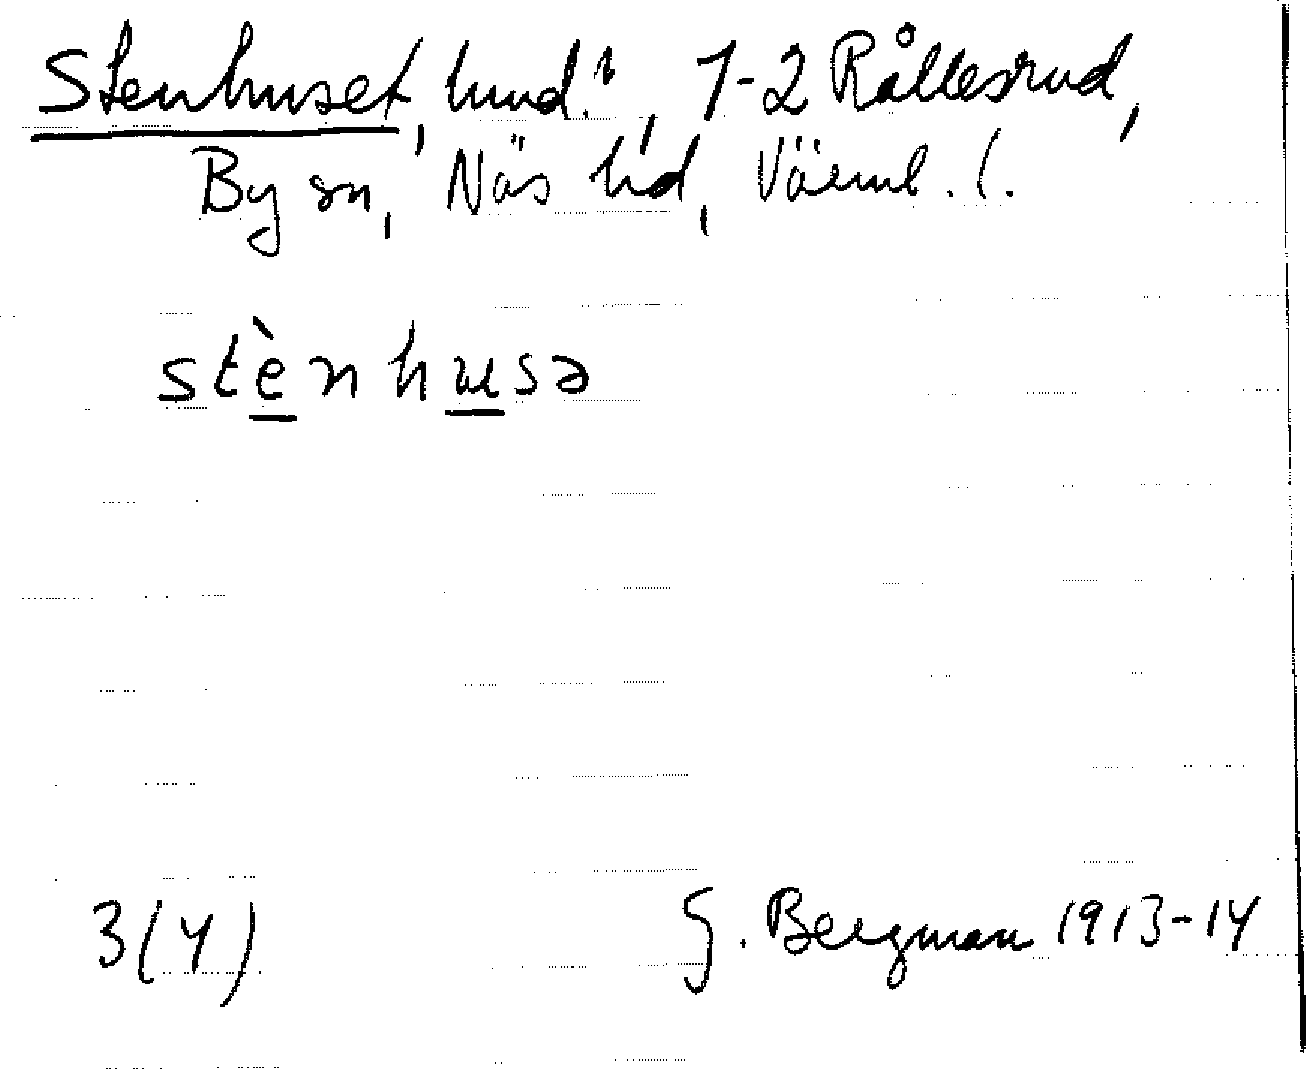 Stenhuset, hmd.?, 1-2 Rållesrud,
By sn, Näs hd, Värml. l.
stènhusə
3(4)
G. Bergman 1913-14